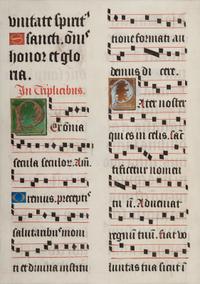 vnitate spirit᷒
sancti, oīs
honor et glo
ria.
In Triplicibus.
Per omnia
secula seculor. Am̄.
Oremus. precepti᷒
salutaribus moni
ti et diuina institu
tione formati au
demus di cere.
Pater noster
qui es in celis. san̄
tificetur nomen
tuū. Adueniat
regnū tuū. fiat vo
luntas tua sicut i